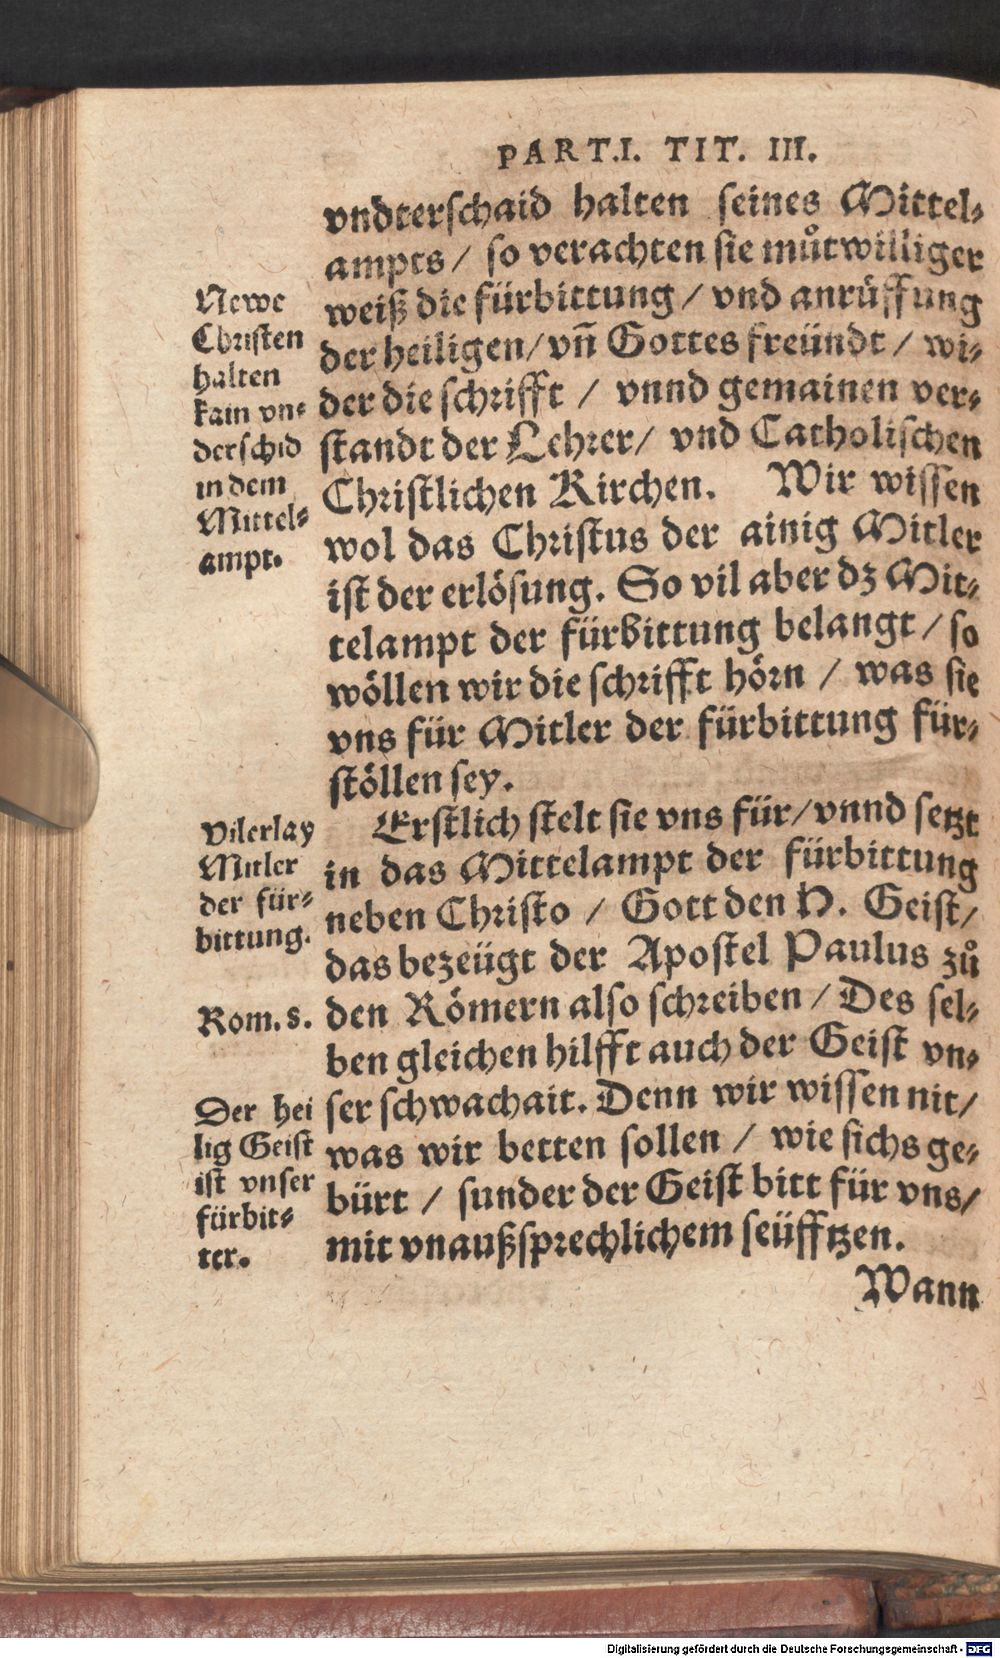 PART.I. TIT. III.
vndterschaid halten seines Mittel-
ampts / so verachten sie můtwilliger
weiß die fürbittung / vnd anrüffung
der heiligen / vñ Gottes freündt / wi-
der die schrifft / vnnd gemainen ver-
standt der Lehrer / vnd Catholischen
Christlichen Kirchen. Wir wissen
wol das Christus der ainig Mitler
ist der erlösung. So vil aber dz Mit-
telampt der fürbittung belangt / so
wöllen wir die schrifft hörn / was sie
vns für Mitler der fürbittung für-
stöllen sey.
Erstlich stelt sie vns für / vnnd setzt
in das Mittelampt der fürbittung
neben Christo / Gott den H. Geist /
das bezeügt der Apostel Paulus zů
den Römern also schreiben / Des sel-
ben gleichen hilfft auch der Geist vn-
ser schwachait. Denn wir wissen nit /
was wir betten sollen / wie sichs ge-
bürt / sunder der Geist bitt für vns /
mit vnaußsprechlichem seüfftzen.
Wann
Newe
Christen
halten
kain vn-
derschid
in dem
Mittel-
ampt.
Vilerlay
Mitler
der für-
bittung.
Rom. 8.
Der hei
lig Geist
ist vnser
fürbit-
ter.
Digitalisierung gefördert durch die Deutsche Forschungsgemeinschaft - DFG